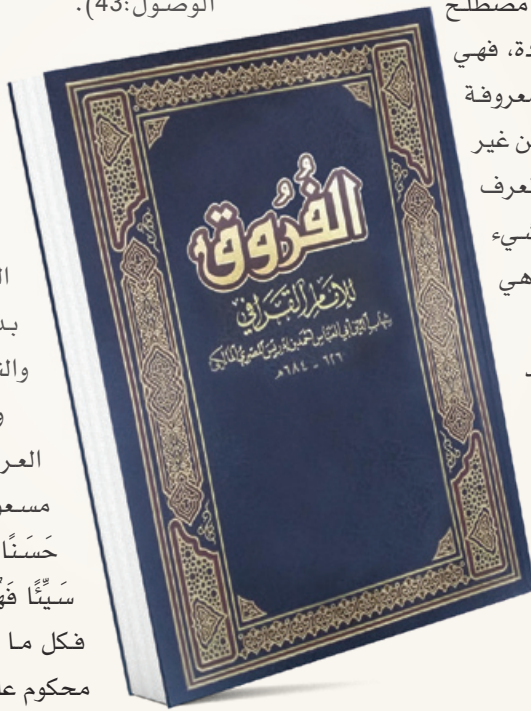 الوصول:43).
مصطلح
فهي
معروفة
ن غير
لعرف
هي
الفُرُوق
للإمام القرافي
شهاب الدين أبي العباس أحمد بن إدريس المصري المالكي
٦٢٦ - ٦٨٤هـ
العر
حَسَنًا
فكل ما
محكوم